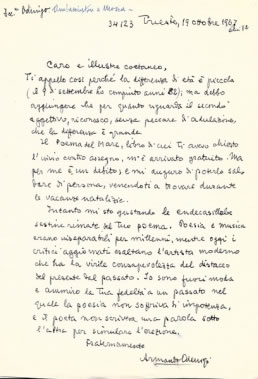 34123 Trieste, 19 ottobre 1987
Caro e illustre coetaneo,
Ti appello così perché la differenza di età è piccola
(il 9 di settembre ho compiuto anni 82); ma debbo
aggiungere che per quanto riguarda il secondo
aggettivo, riconosco, senza peccare d'adulazione,
che la differenza è grande.
Il Poema del Mare, libro di cui Ti avevo chiesto
l'invio contro assegno, m'è arrivato gratuito. Ma
per me è un debito; e mi auguro di poterlo sal-
dare di persona, venendoti a trovare durante
le vacanze natalizie.
Intanto mi sto gustando le endecasillabe
sestine rimate del Tuo poema. Poesia e musica
erano inseparabili per millenni, mentre oggi i
critici aggiornati esaltano l'artista moderno
che ha la virile consapevolezza del distacco
del presente dal passato. Io sono fuori moda
e ammiro la Tua fedeltà a un passato nel
quale la poesia non soffriva d'impotenza,
e il poeta non scriveva una parola sotto
l'altra per simulare l'erezione.
Fraternamente